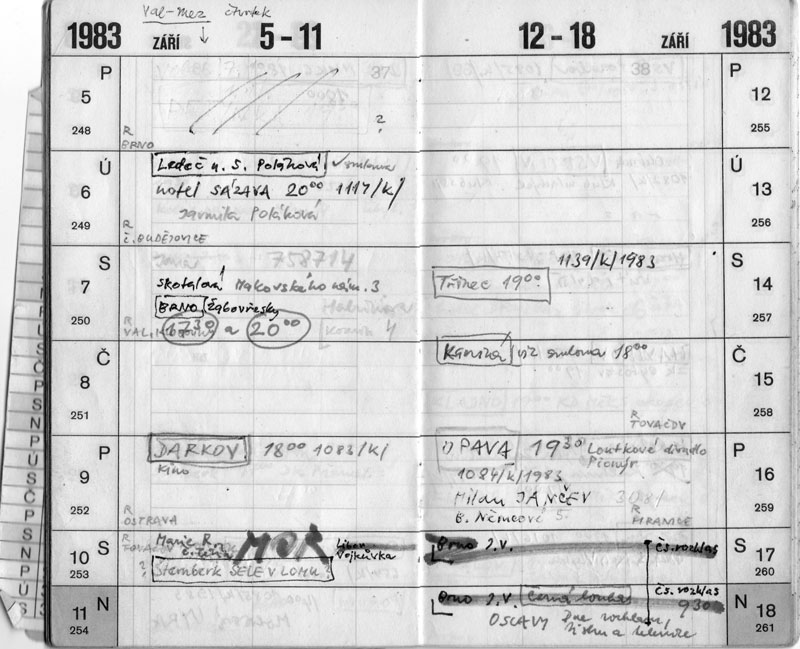 Val-Mez čtvrtek
1983 ZÁŘÍ 5 - 11
P
5
248
37
?
R
BRNO
Ú
6
249
Ledeč n. S. Poláková smlouva
hotel SÁZAVA 20⁰⁰ 1117/k/
Jarmila Poláková
R
Č. BUDĚJOVICE
S
7
250
758714
Skotalová Makovského nám. 3
BRNO Žabovřesky
17³⁰ a 20⁰⁰
R
Č
8
251
P
9
252
DARKOV 18⁰⁰ 1083/k/
kino
R
OSTRAVA
S
10
253
Marie R.
Č. Těšín
MOŘ
Libor
Vojkůvka
? Šternberk SELE V LOMU
N
11
254
12 - 18 ZÁŘÍ 1983
38
P
12
255
Ú
13
256
S
14
257
1139/k/1983
Třinec 19⁰⁰
Č
15
258
Karviná viz smlouva 18⁰⁰
R
TOVAČOV
P
16
259
OPAVA 19³⁰ Loutkové divadlo
Pionýr
1084/k/1983
Milan JANČEV
B. Němcové 5.
R
HRANICE
S
17
260
Brno J.V. Čs. rozhlas
N
18
261
Brno J.V. Černá louka Čs. rozhlas
9³⁰
OSLAVY Dne rozhlasu,
tisku a televize
P
U
S
Č
P
S
N
P
U
S
Č
P
S
N
P
U
S